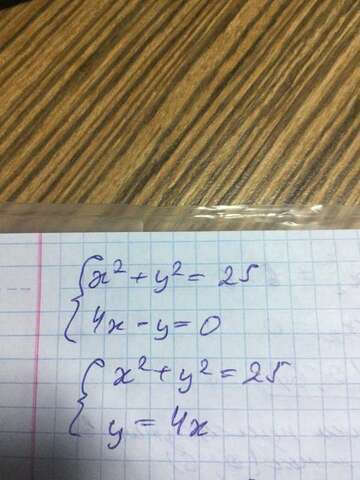 { x² + y² = 25
4x - y = 0
{ x² + y² = 25
y = 4x